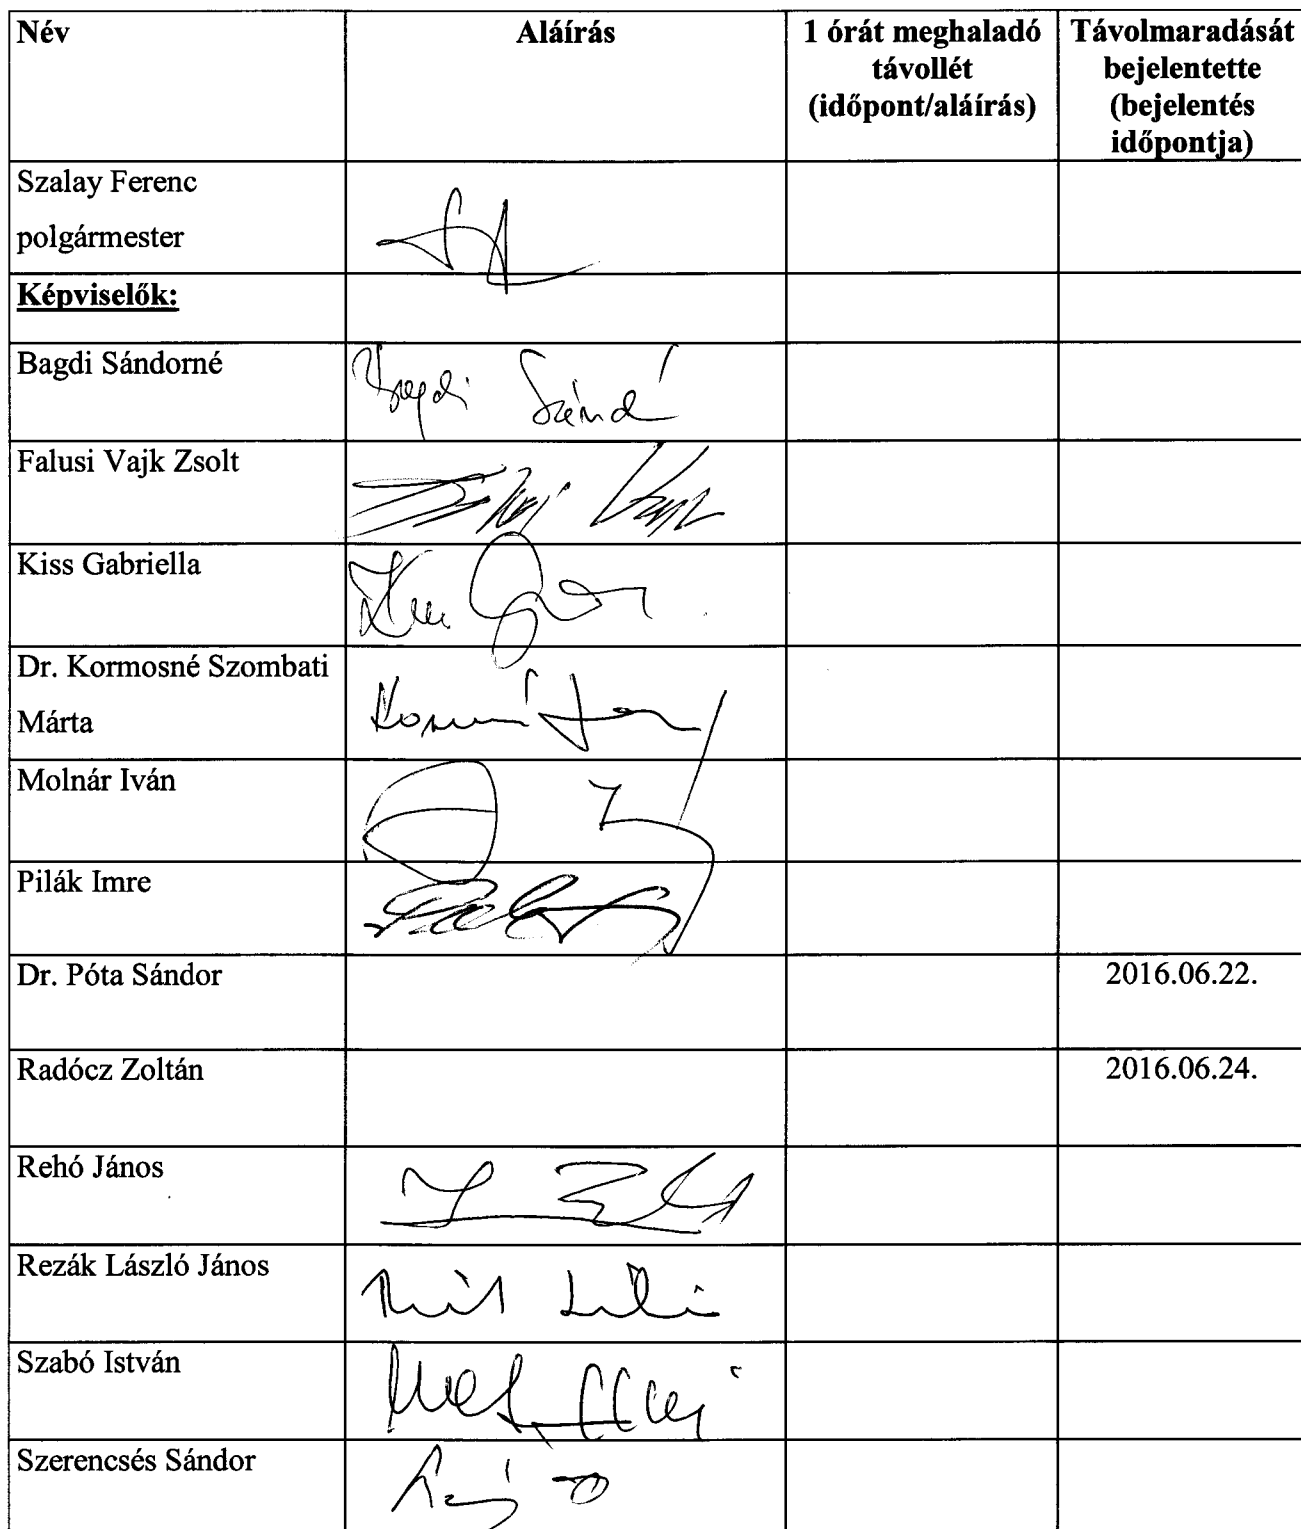 Név Aláírás 1 órát meghaladó távollét (időpont/aláírás) Távolmaradását bejelentette (bejelentés időpontja)
Szalay Ferenc
polgármester
Képviselők:
Bagdi Sándorné Bagdi Sánd
Falusi Vajk Zsolt
Kiss Gabriella
Dr. Kormosné Szombati
Márta
Molnár Iván
Pilák Imre
Dr. Póta Sándor 2016.06.22.
Radócz Zoltán 2016.06.24.
Rehó János
Rezák László János
Szabó István
Szerencsés Sándor